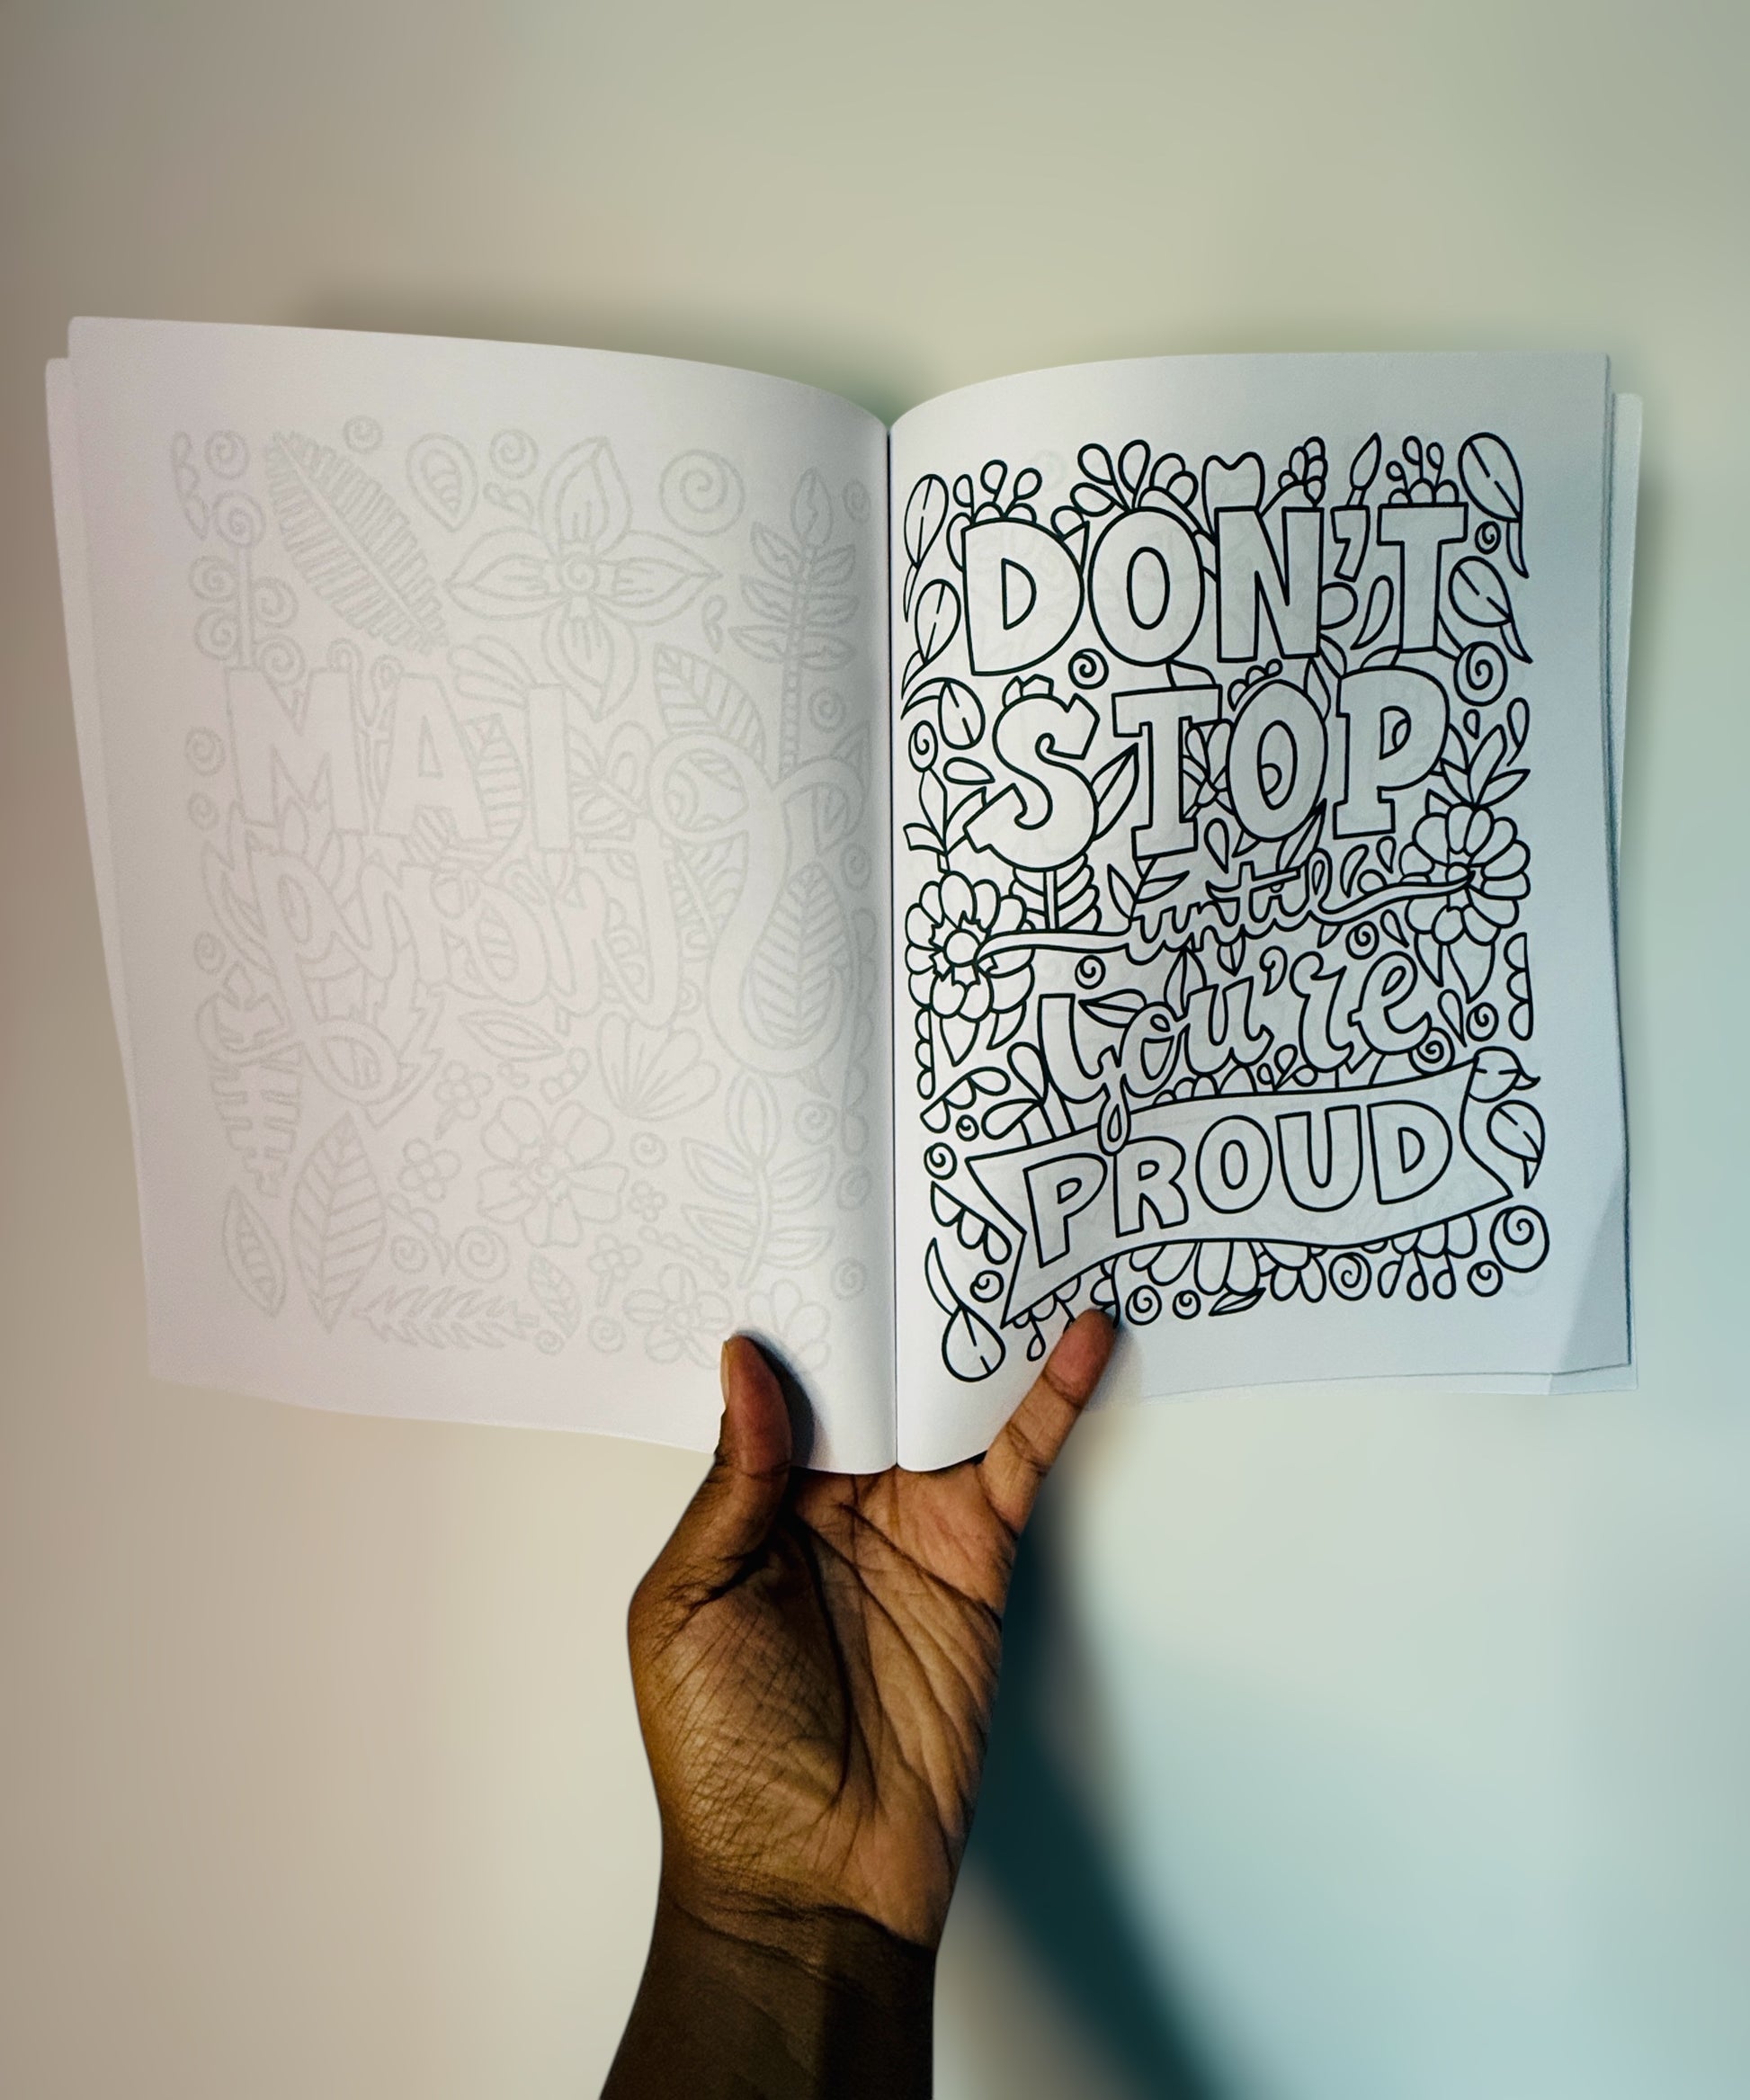 DON'T
STOP
until
you're
PROUD